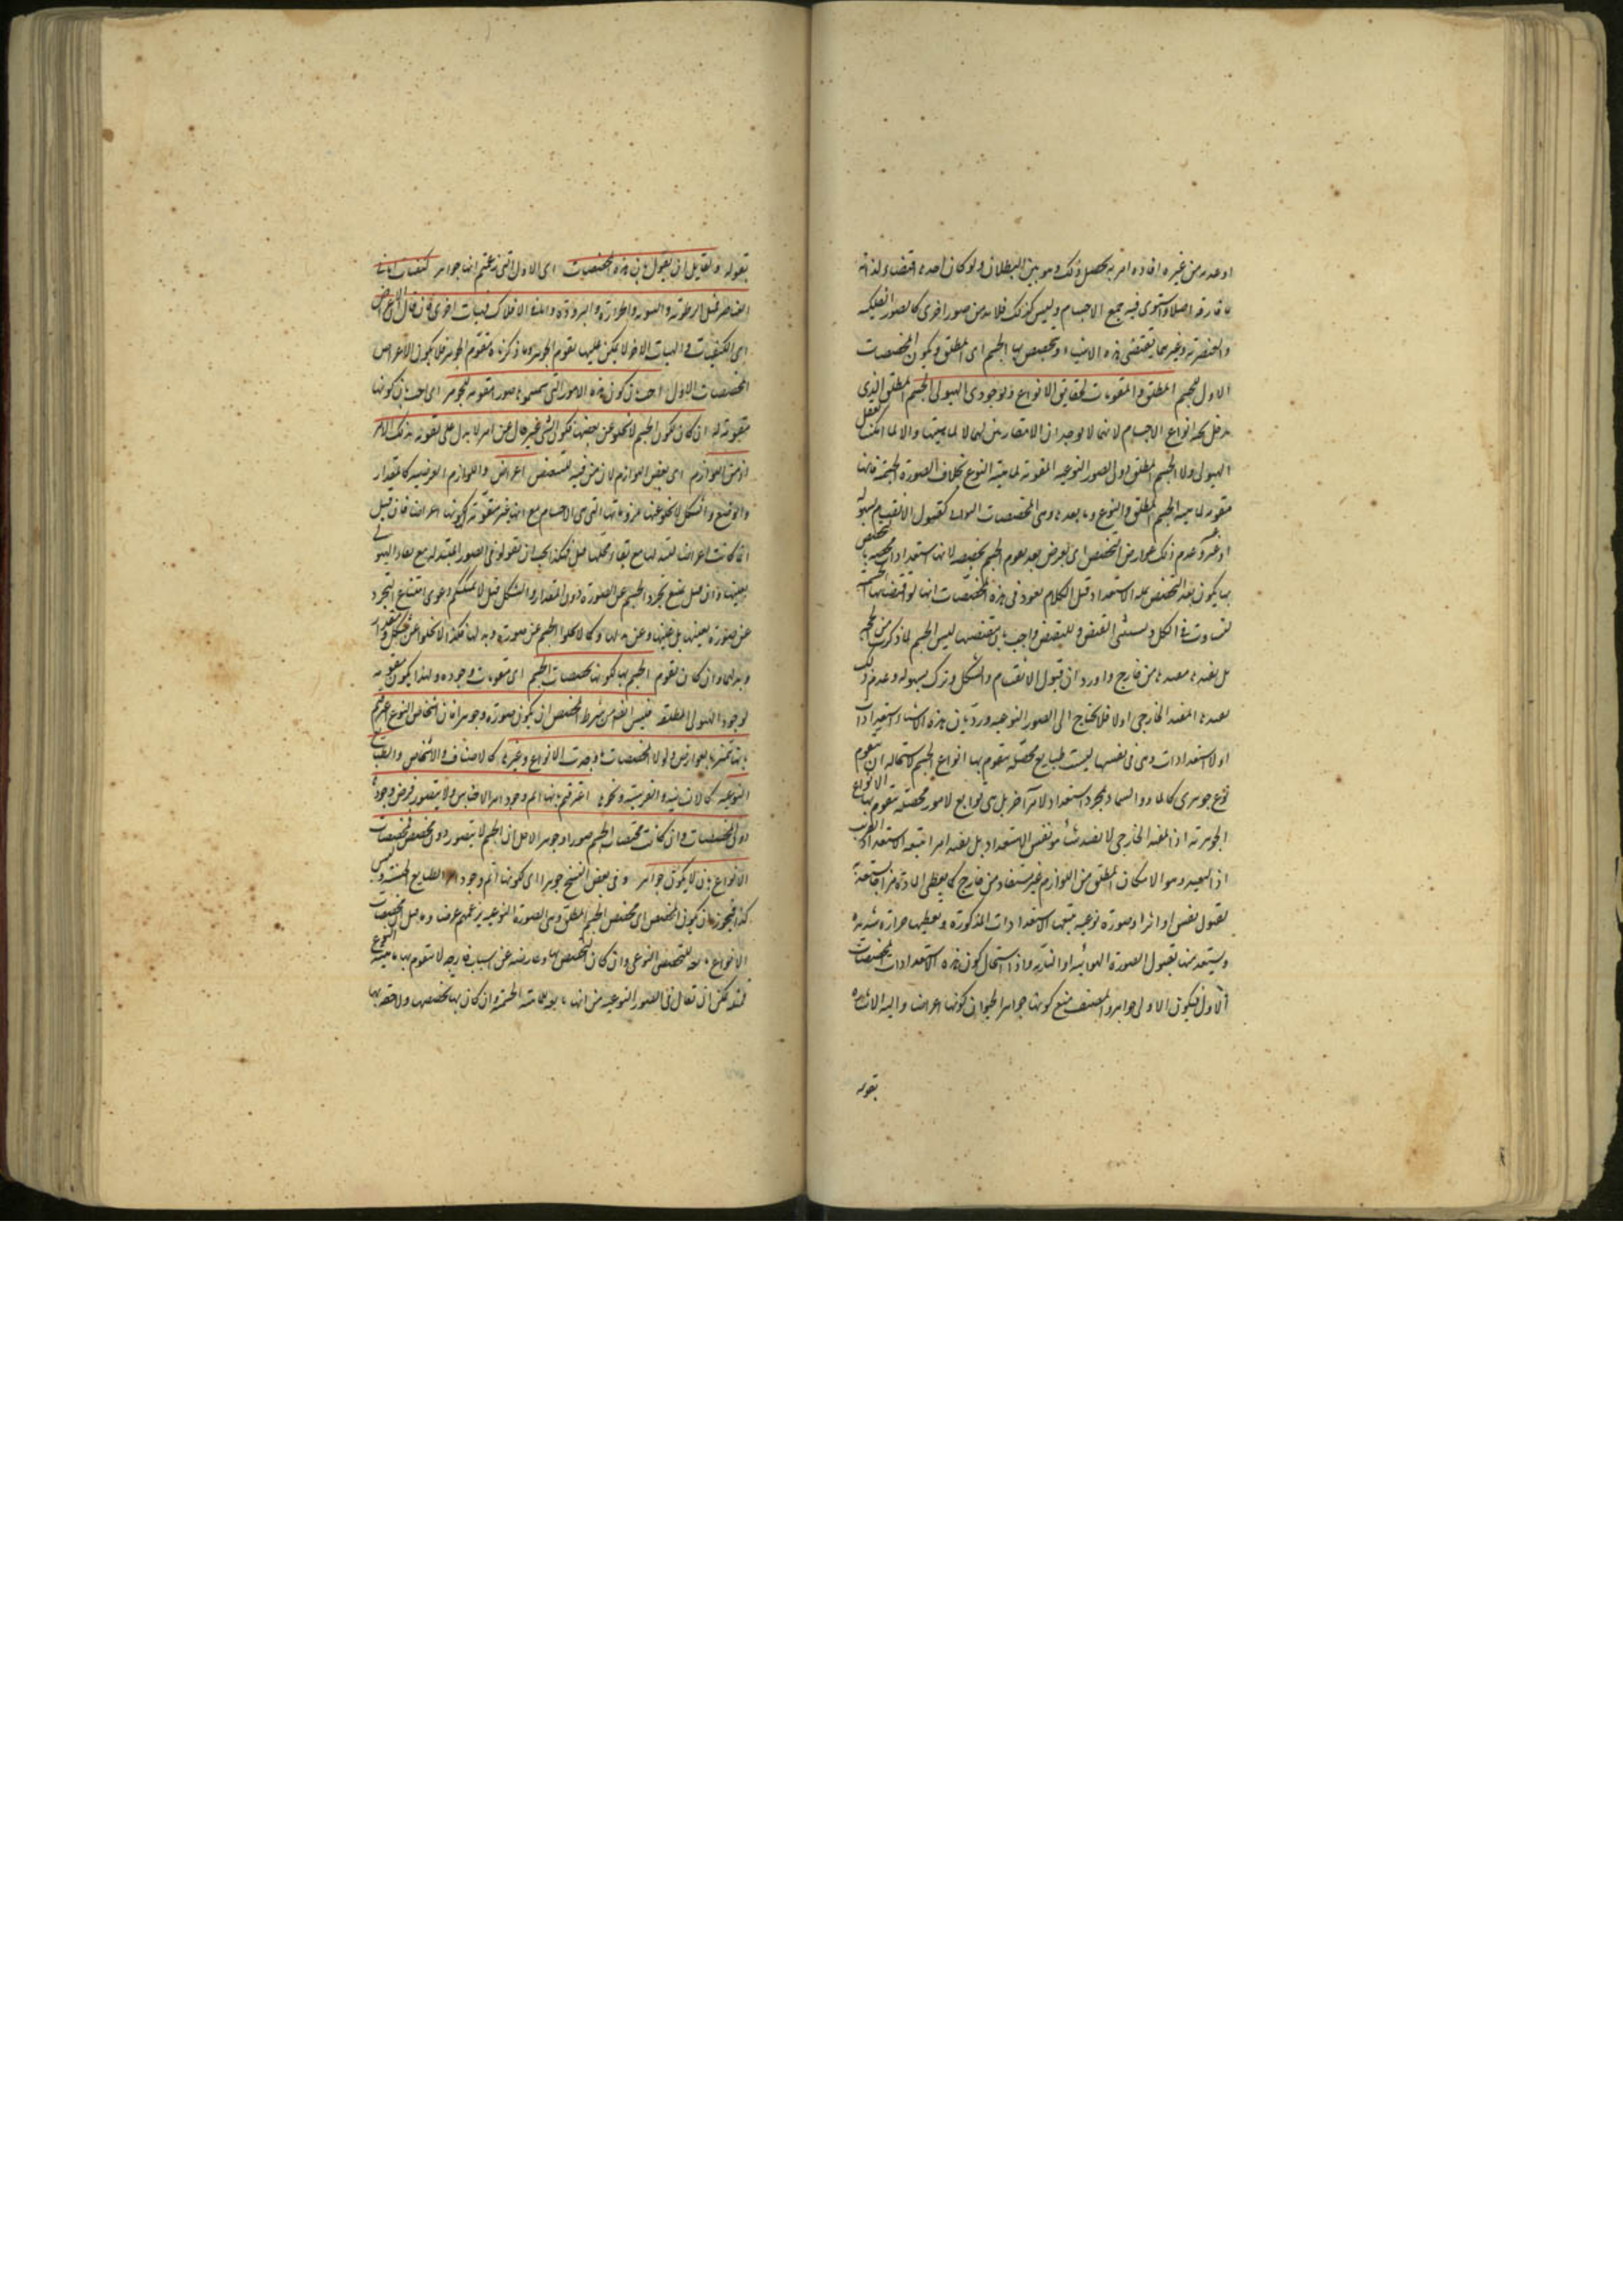 او عدمه من غيره افاده امر به يحصل ذلك وهو بين البطلان ولو كان احدها مقتضاه لذاته
ما فارقه اصلا واستوى فيه جميع الاجسام وليس كذلك فلا بد من صور اخرى كالصور الفلكيه
والعنصريه وغيرهما تقتضى هذه الاشياء وتخصص بها الجسم اى المطلق ويكون المخصصات
الاول للجسم المطلق والمقومات لحقايق الانواع ولوجودى الهيولى والجسم المطلق الذى
يدخل تحته انواع الاجسام لانهما لا يوجدان الا متقارنين بها لا لماهيتهما والا لما امكن تعقل
الهيولى ولا الجسم المطلق دون الصور النوعيه المقومة لماهية النوع بخلاف الصورة الجسمية فانها
مقومة لماهية الجسم المطلق والنوع وما بعدها وهى المخصصات الثوانى كقبول الانقسام بسهولة
او عسر وعدم ذلك عوارض المخصص اى يعرض بعد تقوم الجسم بمخصصه لانها استعدادات
بها يكون بعد التخصص عليه الاستعداد قيل الكلام يعود فى هذه المخصصات انها لو اقتضتها الجسمية
لتساوت فى الكل
بل يفيدها مفيد ما من خارج واورد ان قبول الانقسام والتشكل وتركه بسهولة وعدم ذلك
يفيدها المفيد الخارجى اولا فلا يحتاج الى الصور النوعيه ورد بان هذه الاشياء استعدادات
او لا استعدادات وهى فى نفسها ليست طبايع محصلة يتقوم بها انواع الجسم لاستحاله ان يتقوم
نوع جوهرى كالماء والسماء بمجرد استعداد لامر آخر بل هى توابع لامور محصله يتقوم بها الانواع
الجوهرية اذ المفيد الخارجى لا يفيد شيئا هو نفس الاستعداد بل يفيد امرا يتبعه الاستعداد القريب
اذ البعيد وهو الامكان المطلق من اللوازم غير مستفاد من خارج كما يعطى المادة مزاجا يستعد به
لقبول نفس او اثر او صورة نوعيه يتبعها الاستعدادات المذكورة ويعطيها حرارة شديدة
ويستعد منها لقبول الصورة الهوائيه او الناريه واذا استحال كون هذه الاستعدادات المخصصات
الاول فيكون الاولى جواهر والمصنف منع كونها جواهر لجواز كونها اعراضا واليه الاشاره
بقوله
بقوله ولقايل ان يقول بان هذه المخصصات اى الاول التى زعمتم انها جواهر كيفيات اما فى
العناصر فمثل الرطوبة واليبوسة والحرارة والبرودة واما فى الافلاك فهيات اخرى فان قال الاعراض
اى الكيفيات والهيات الاخر لا يمكن عليها تقوم الجوهر وما ذكرناه مقوم الجوهر فلا يكون الاعراض
المخصصات الاول اجيب بان كون هذه الامور التى سميتموها صورا مقومه للجوهر اى اجيب بان كونها
مقومة له ان كان لكون الجسم لا يخلو عن بعضها فكون الشئ غير خال عن امر لا يدل على تقومه بذلك الامر
اذ من اللوازم اى بعض اللوازم لان من فيه للتبعيض اعراض واللوازم العرضيه كالمقدار
والوضع والشكل لا يخلو عنها ملزوماتها التى هى الاجسام مع انها غير مقومة لكونها اعراضا فان قيل
انما كانت اعراضا لتبدلها مع بقاء محلها قيل فكذا يجب ان تقولوا فى الصور لتبدلها مع بقاء الهيولى
بعينها وان قيل يمتنع تجرد الجسم عن الصورة دون المقدار والشكل قيل لا يمكنكم دعوى امتناع التجرد
عن صورة بعينها بل عنها وعن بدلها وكما لا يخلو الجسم عن صورة وبدلها فكذا لا يخلو عن شكل ومقدار
وبدلهما وان كان تقوم الجسم بها لكونها مخصصات الجسم اى مقومات وجوده ولهذا يكون مقومه
لوجود الهيولى المطلقه فليس ايضا من شرط المخصص ان يكون صورة وجوهرا فان اشخاص النوع اعترفتم
بانها تتميز بالعوارض ولولا المخصصات ما وجدت الانواع وغيرها كالاصناف والاشخاص والطبايع
النوعيه كالانسانية والفرسية ونحوها اعترفتم بانها اتم وجودا من الاجناس ولا يتصور فرض وجودها
دون المخصصات فان كانت مخصصات الجسم صورا وجوهرا لاجل ان الجسم لا يتصور دون مخصص فمخصصات
الانواع اولى بان يكون جواهر وفى بعض النسخ جوهرا اى لكونها اتم وجودا من الطبايع الجنسية وليس
كذا فيجوز ان يكون المخصص اى مخصص الجسم المطلق وهى الصورة النوعيه بزعمهم عرضا
الانواع تابعه للتخصص النوعى وان كان التخصص بها وعارضه عن اسباب خارجه لا تتقوم بها ماهية النوع
فمثله يمكن ان يقال فى الصور النوعيه من انها تابعه لماهية الجسمية وان كان بها تخصصها ولاحقه بها